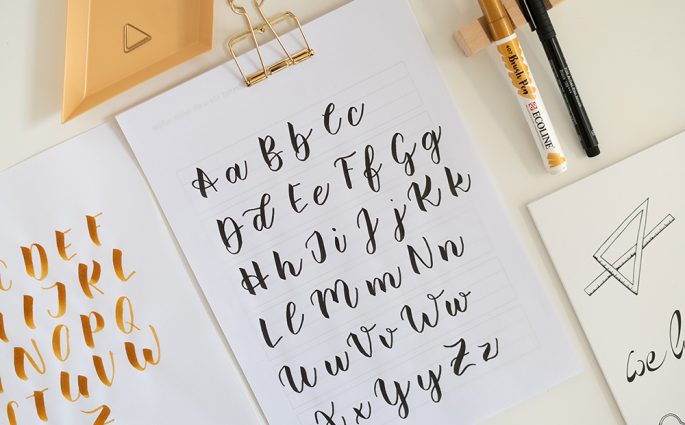 Aa Bb Cc
Dd Ee Ff Gg
Hh Ii Jj Kk
Ll Mm Nn
Uu Vv Ww
Xx Yy Zz
C D E F
I J K L
N O P Q
T U V W
Z
Brush Pen
ECOLINE
we